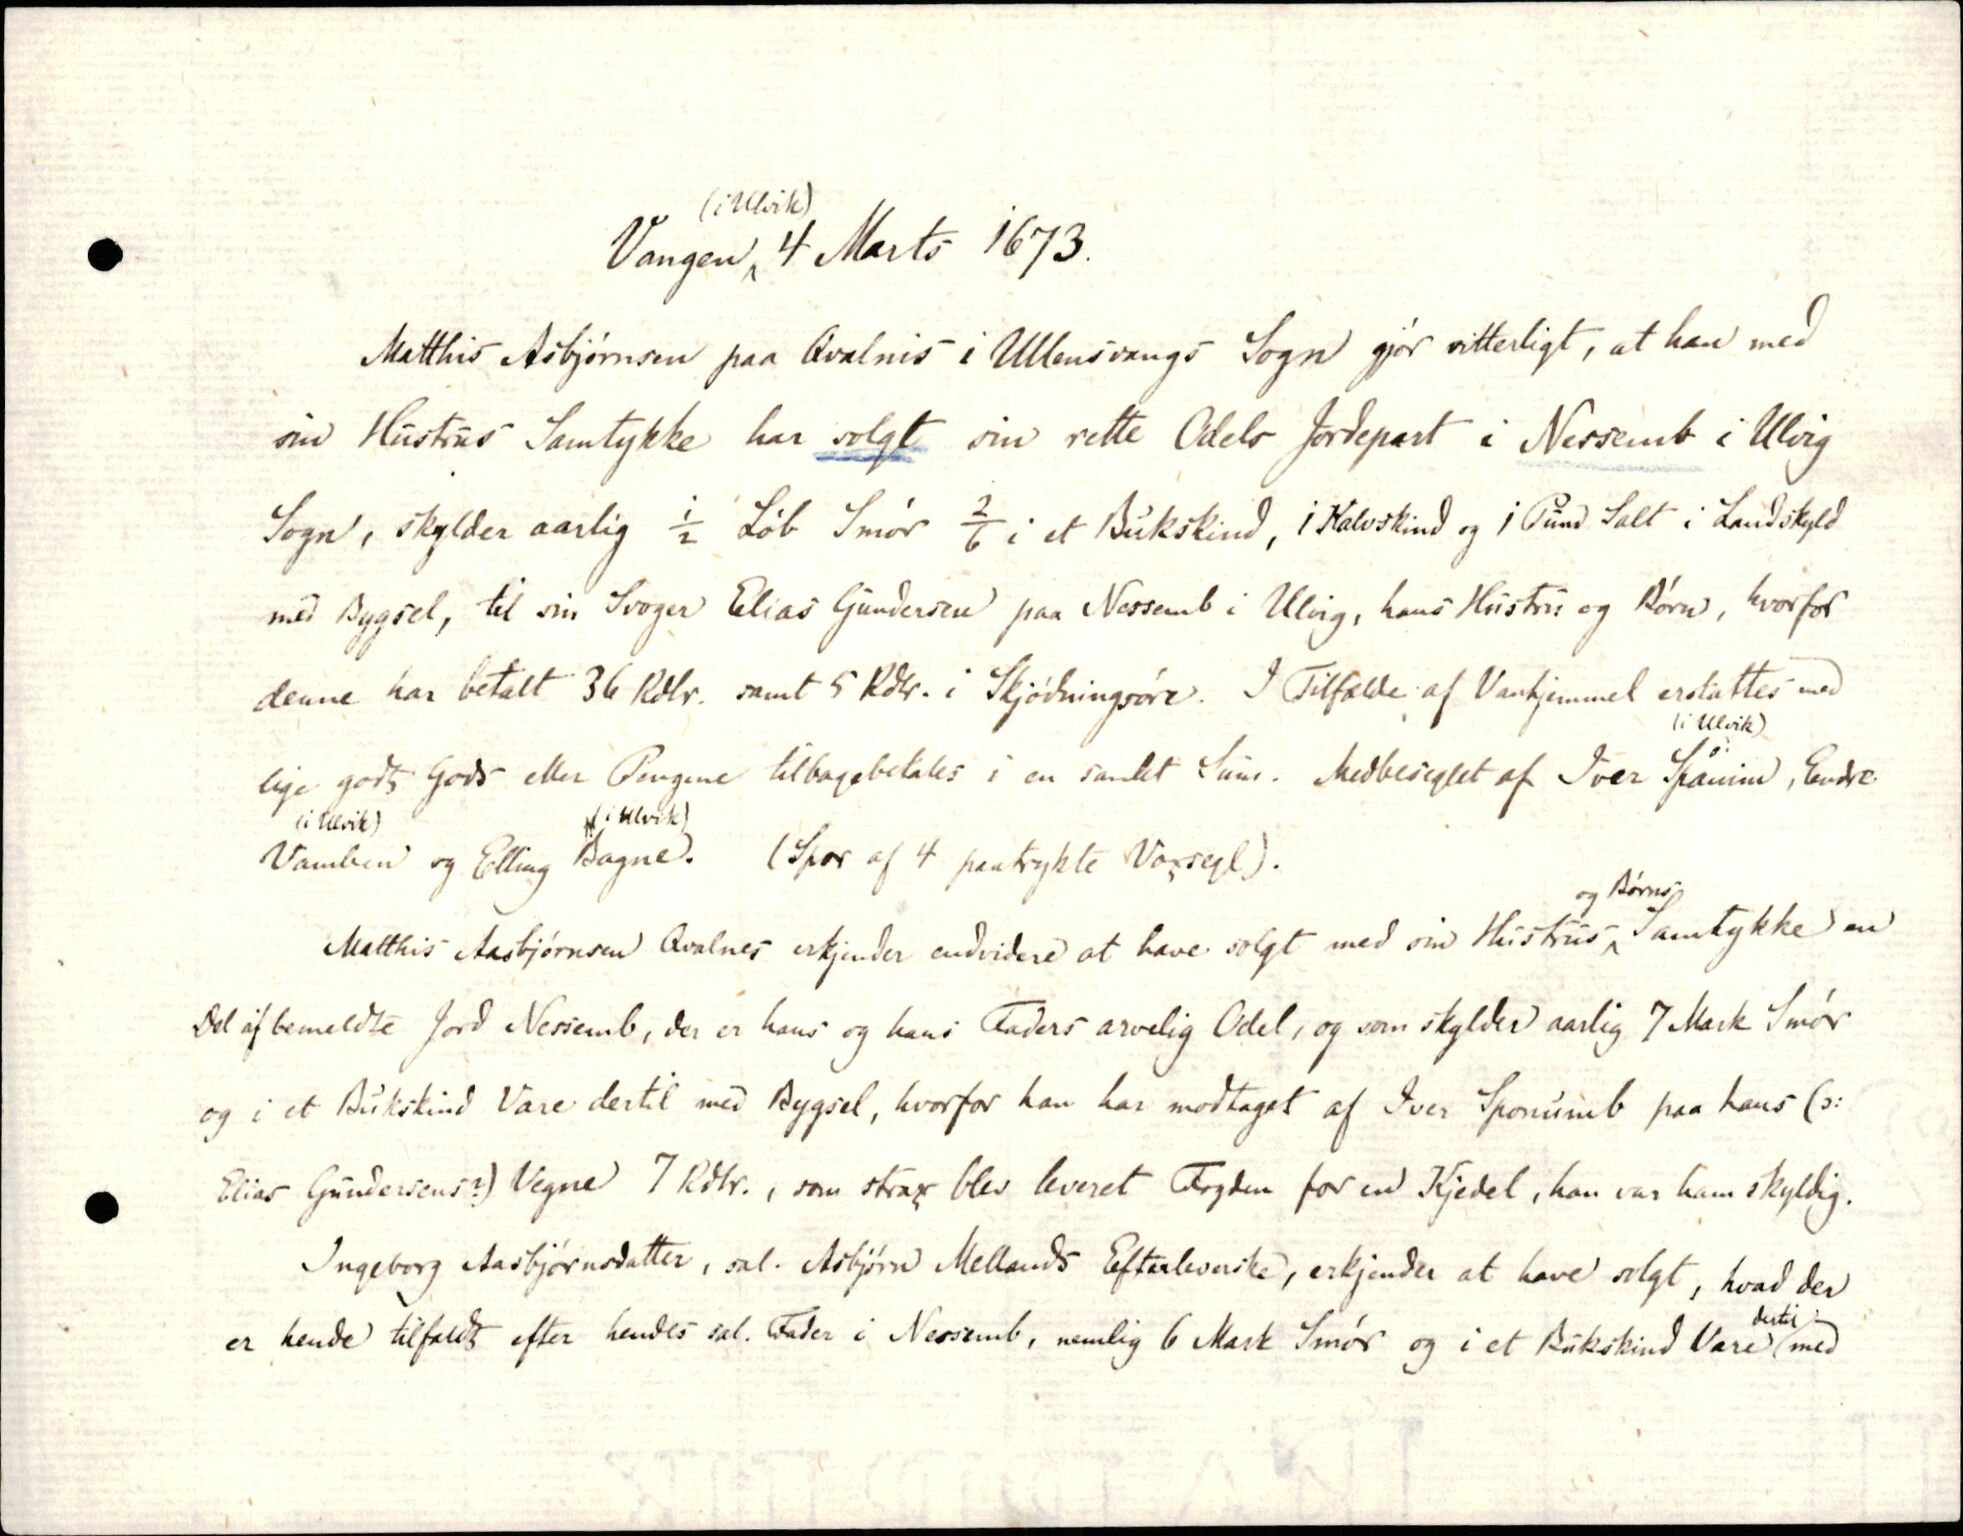 Vangen (i Ulvik) 4 Marts 1673.
Matthis Asbjørnsen paa Qvalnis i Ullensvangs Sogn gjør vitterligt, at han med
sin Hustrus Samtykke har solgt sin rette Odels Jordepart i Nessemb i Ulvig
Sogn, skylder aarlig 1/2 Løb Smør 2/6 i et Bukskind, 1 Kalvskind og 1 Pund Salt i Landskyld
med Bygsel, til sin Svoger Elias Gundersen paa Nessemb i Ulvig, hans Hustru og Børn, hvorfor
denne har betalt 36 Rdlr. samt 5 Rdlr. i Skjødningsøre. I Tilfælde af Vanhjemmel erstattes med
lige godt Gods eller Pengene tilbagebetales i en samlet Sum. Medbeseglet af Iver Spånim (i Ulvik), Endre
Vamben (i Ulvik) og Elling Bagne (i Ulvik). (Spor af 4 paatrykte Voxsegl).
Matthis Aasbjørnsen Qvalnes erkjender endvidere at have solgt med sin Hustrus og Børns Samtykke en
Del af bemeldte Jord Nessemb, der er hans og hans Faders arvelig Odel, og som skylder aarlig 7 Mark Smør
og i et Bukskind Vare dertil med Bygsel, hvorfor han har modtaget af Iver Sponumb paa hans (ɔ:
Elias Gundersens?) Vegne 7 Rdlr., som strax blev leveret Fogden for en Kjedel, han var ham skyldig.
Ingeborg Aasbjørnsdatter, sal. Asbjørn Mellands Efterleverske, erkjender at have solgt, hvad der
er hende tilfaldt efter hendes sal. Fader i Nessemb, nemlig 6 Mark Smør og i et Bukskind Vare dertil med